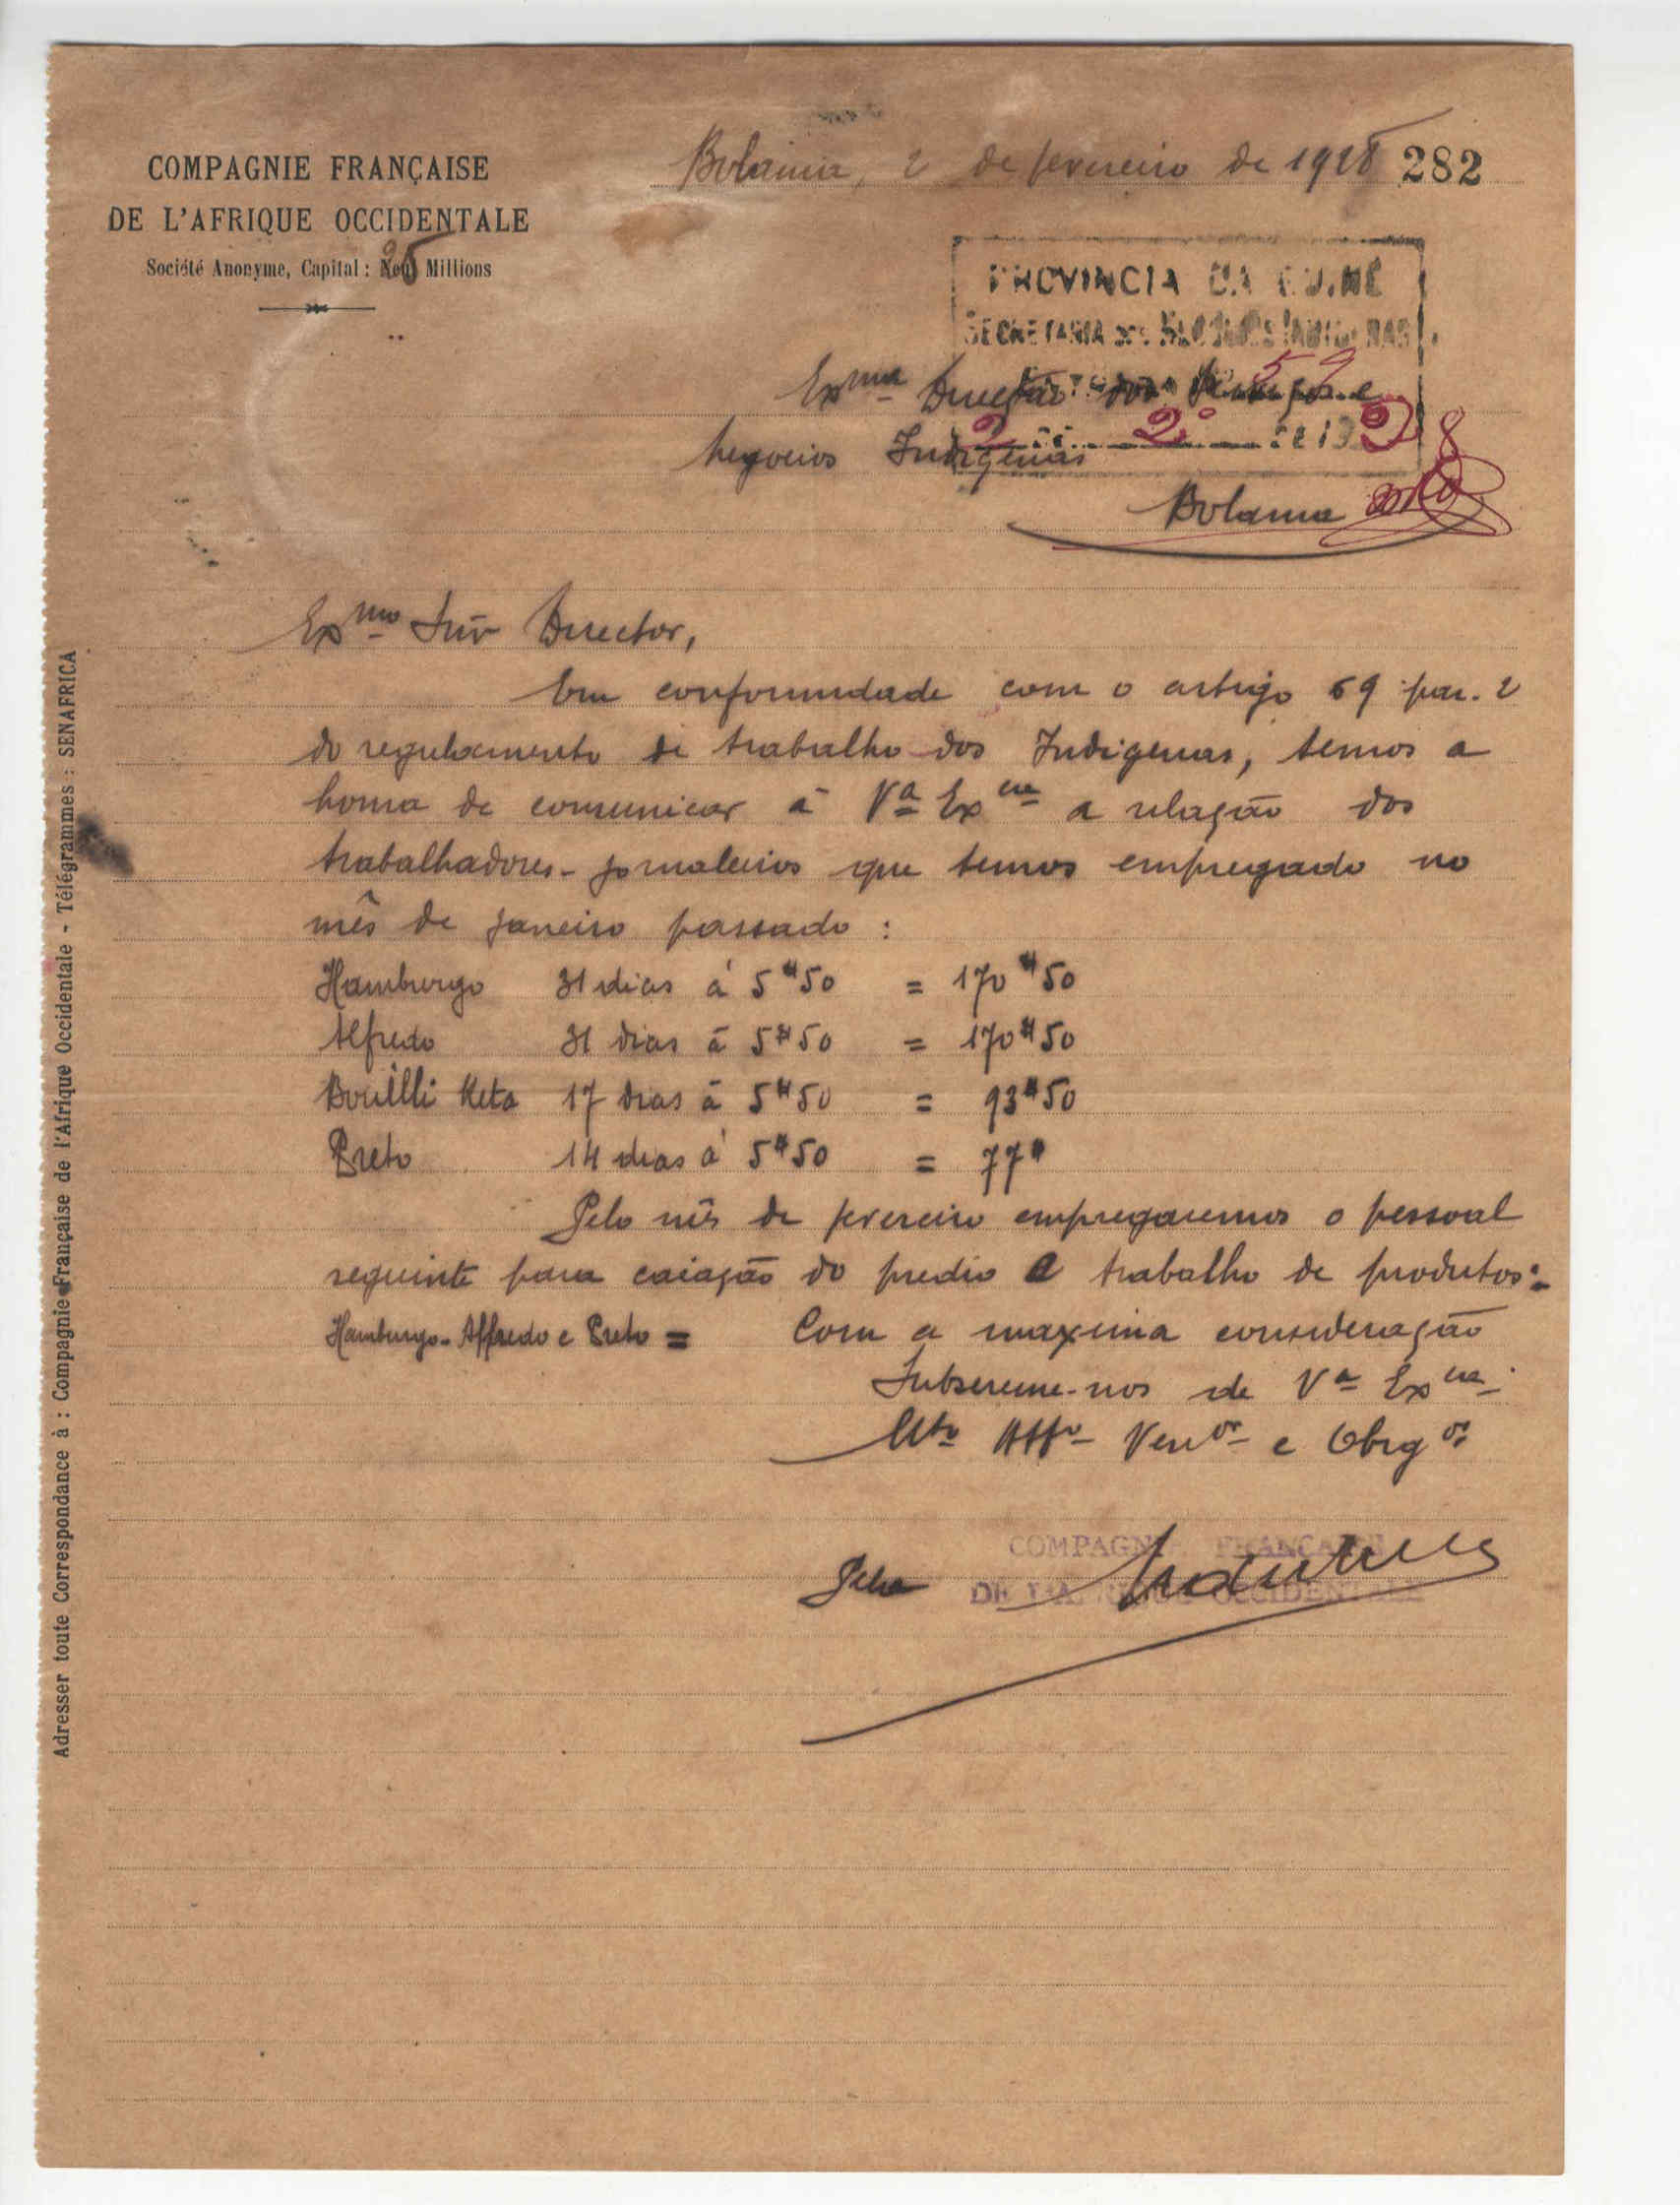 COMPAGNIE FRANÇAISE
DE L'AFRIQUE OCCIDENTALE
Société Anonyme, Capital : Millions
Bolama, 2 de fevereiro de 1928 282
PROVINCIA DA GUINÉ
SECRETARIA DOS NEGOCIOS INDIGENAS
Exma Direcção dos
negocios Indigenas
2 2º de 1928
Bolama
Exmo Snr Director,
Em conformidade com o artigo 69 par. 2
do regulamento de trabalho dos Indigenas, temos a
honra de comunicar á Va Excia a relação dos
trabalhadores-jornaleiros que temos empregado no
mês de janeiro passado :
Hamburgo 31 dias á 5$50 = 170$50
Alfredo 31 dias á 5$50 = 170$50
Bouilli Keta 17 dias á 5$50 = 93$50
Preto 14 dias á 5$50 = 77$
Pelo mês de fevereiro empregaremos o pessoal
seguinte para caiação do predio e trabalho de produtos:-
Hamburgo- Alffredo e Preto = Com a maxima consideração
Subscreme-nos de Va Excia
Mto Atto Venor e Obrgor
Pela
COMPAGNIE FRANÇAISE
DE L'AFRIQUE OCCIDENTALE
Adresser toute Correspondance à : Compagnie Française de l'Afrique Occidentale - Télégrammes : SENAFRICA